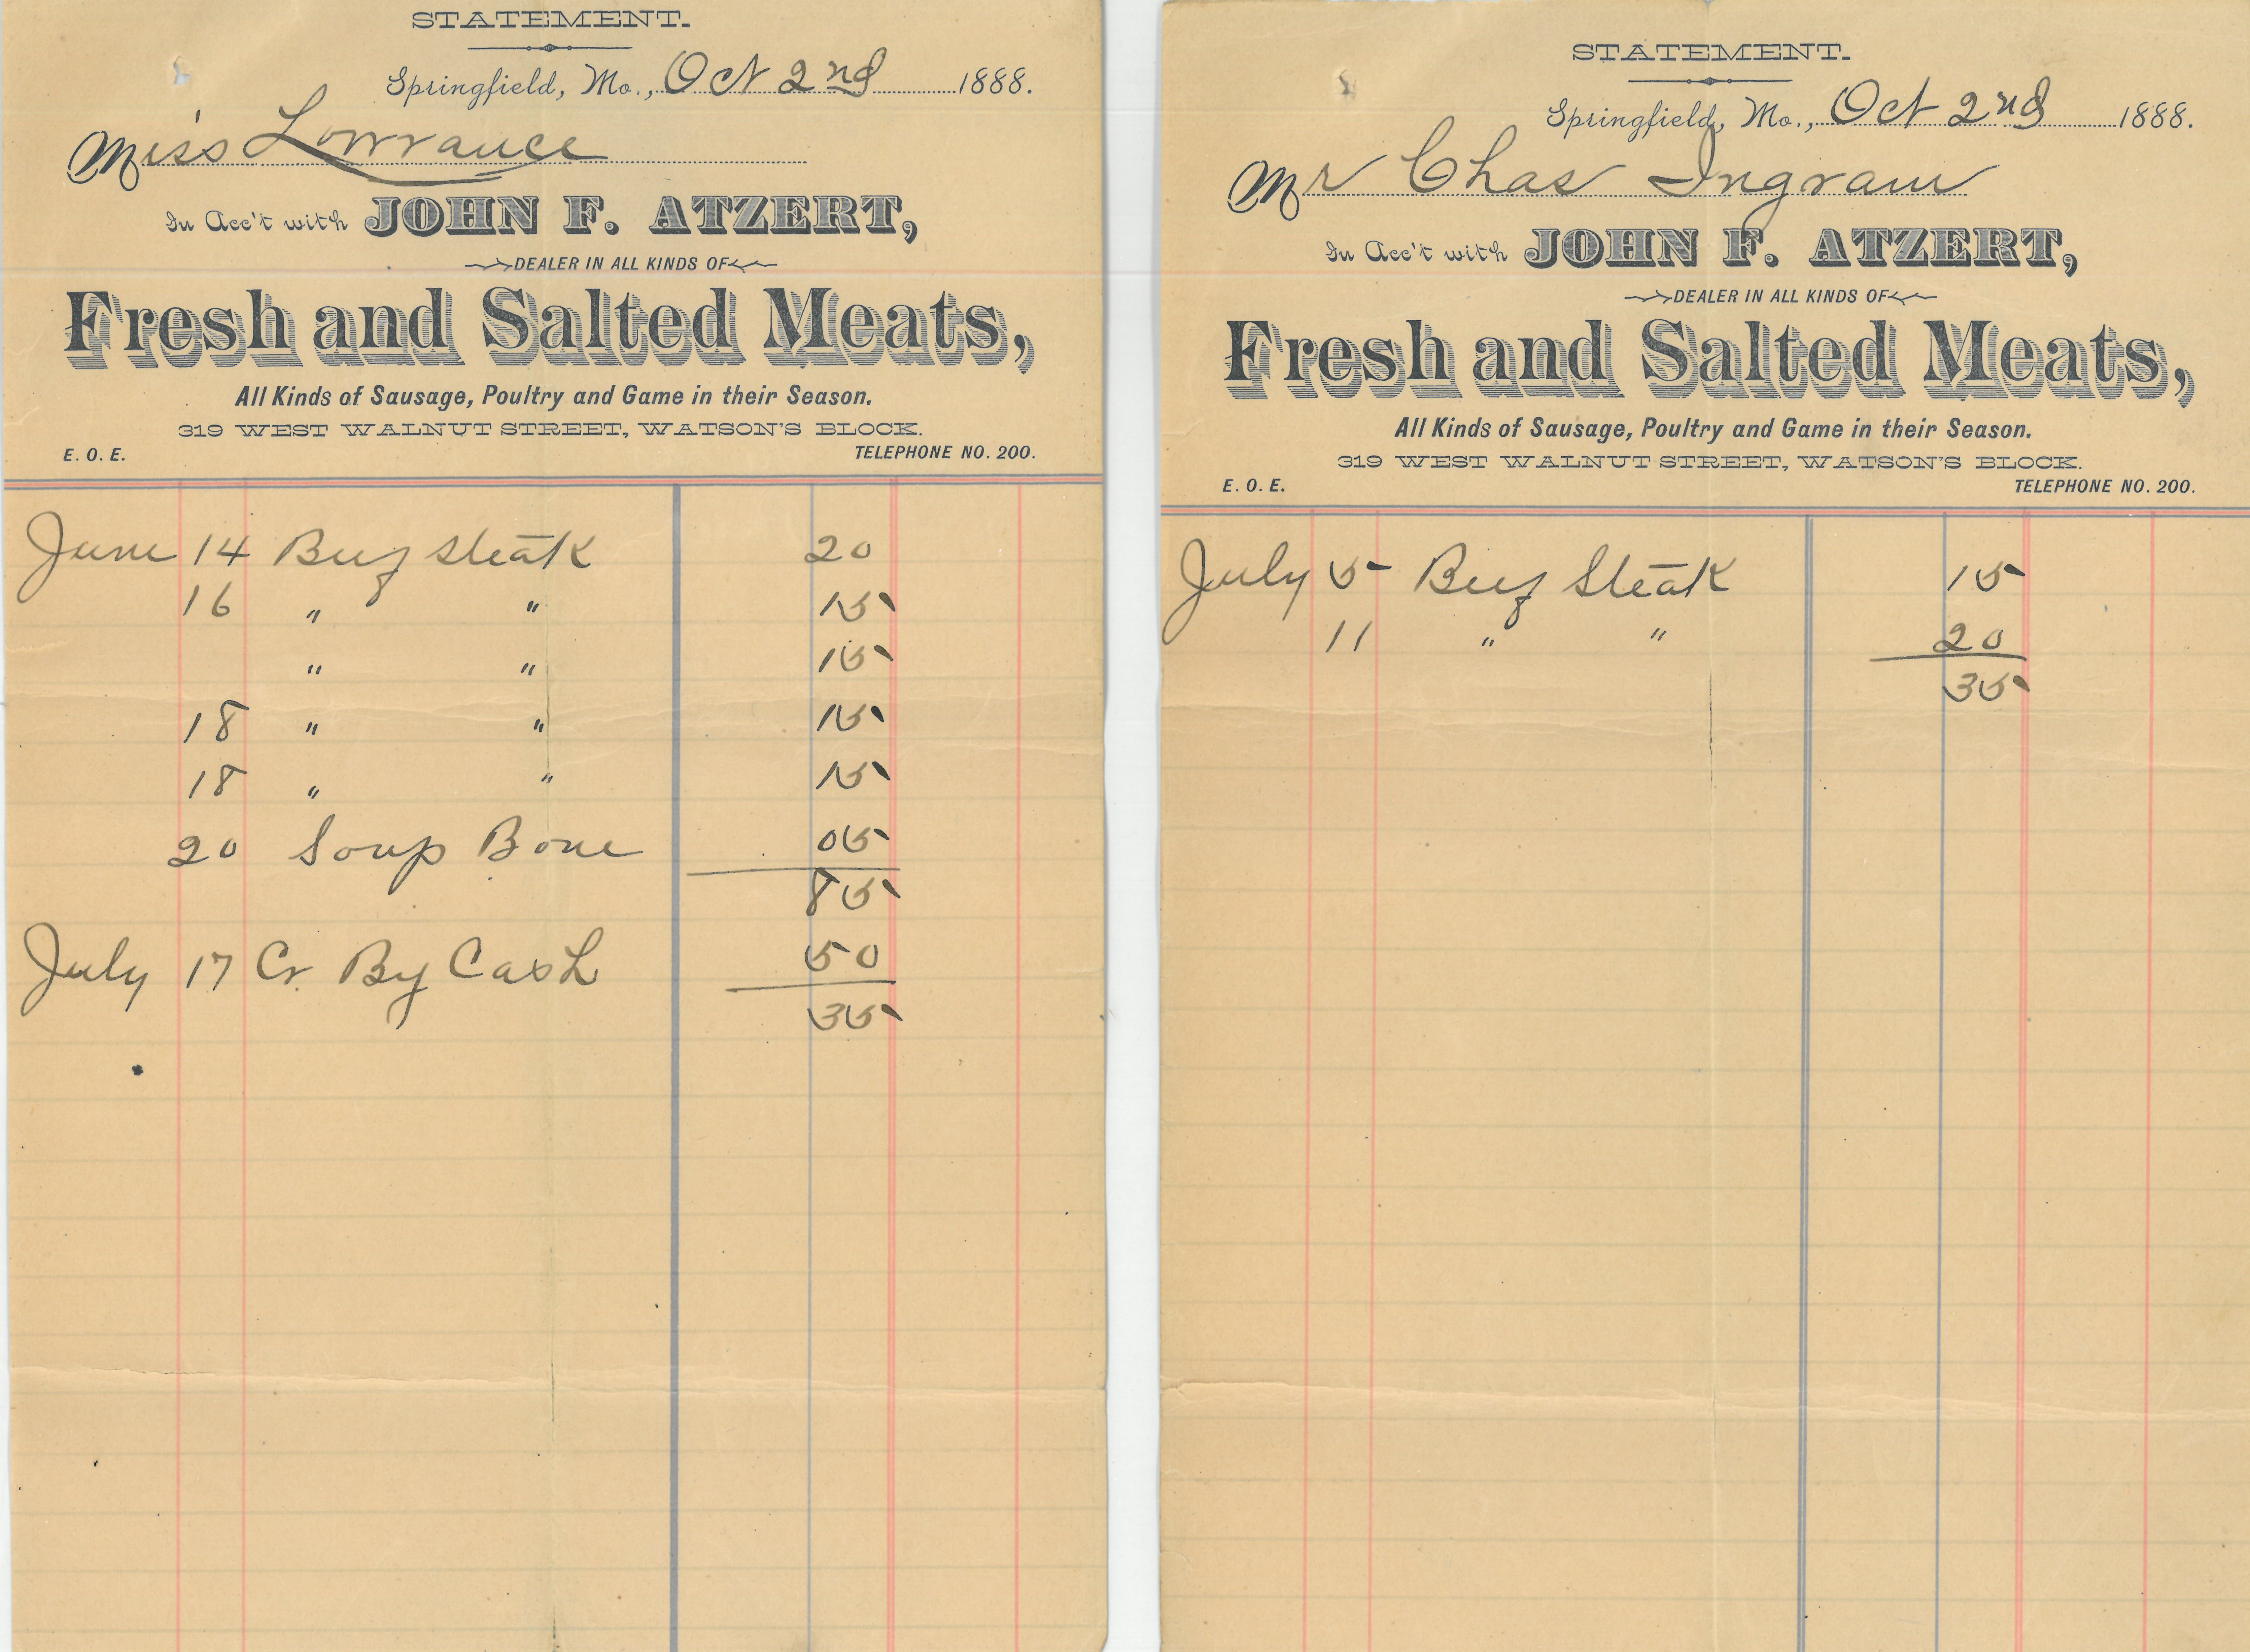 STATEMENT.
Springfield, Mo., Oct 2nd 1888.
Miss Lowrance
In Acc't with JOHN F. ATZERT,
DEALER IN ALL KINDS OF
Fresh and Salted Meats,
All Kinds of Sausage, Poultry and Game in their Season.
319 WEST WALNUT STREET, WATSON'S BLOCK.
E. O. E. TELEPHONE NO. 200.
June 14 Beef Steak 20
16 " " 15
" " 15
18 " " 15
18 " " 15
20 Soup Bone 05
85
July 17 Cr. By Cash 50
35
STATEMENT.
Springfield, Mo., Oct 2nd 1888.
Mr Chas Ingram
In Acc't with JOHN F. ATZERT,
DEALER IN ALL KINDS OF
Fresh and Salted Meats,
All Kinds of Sausage, Poultry and Game in their Season.
319 WEST WALNUT STREET, WATSON'S BLOCK.
E. O. E. TELEPHONE NO. 200.
July 5 Beef Steak 15
11 " " 20
35